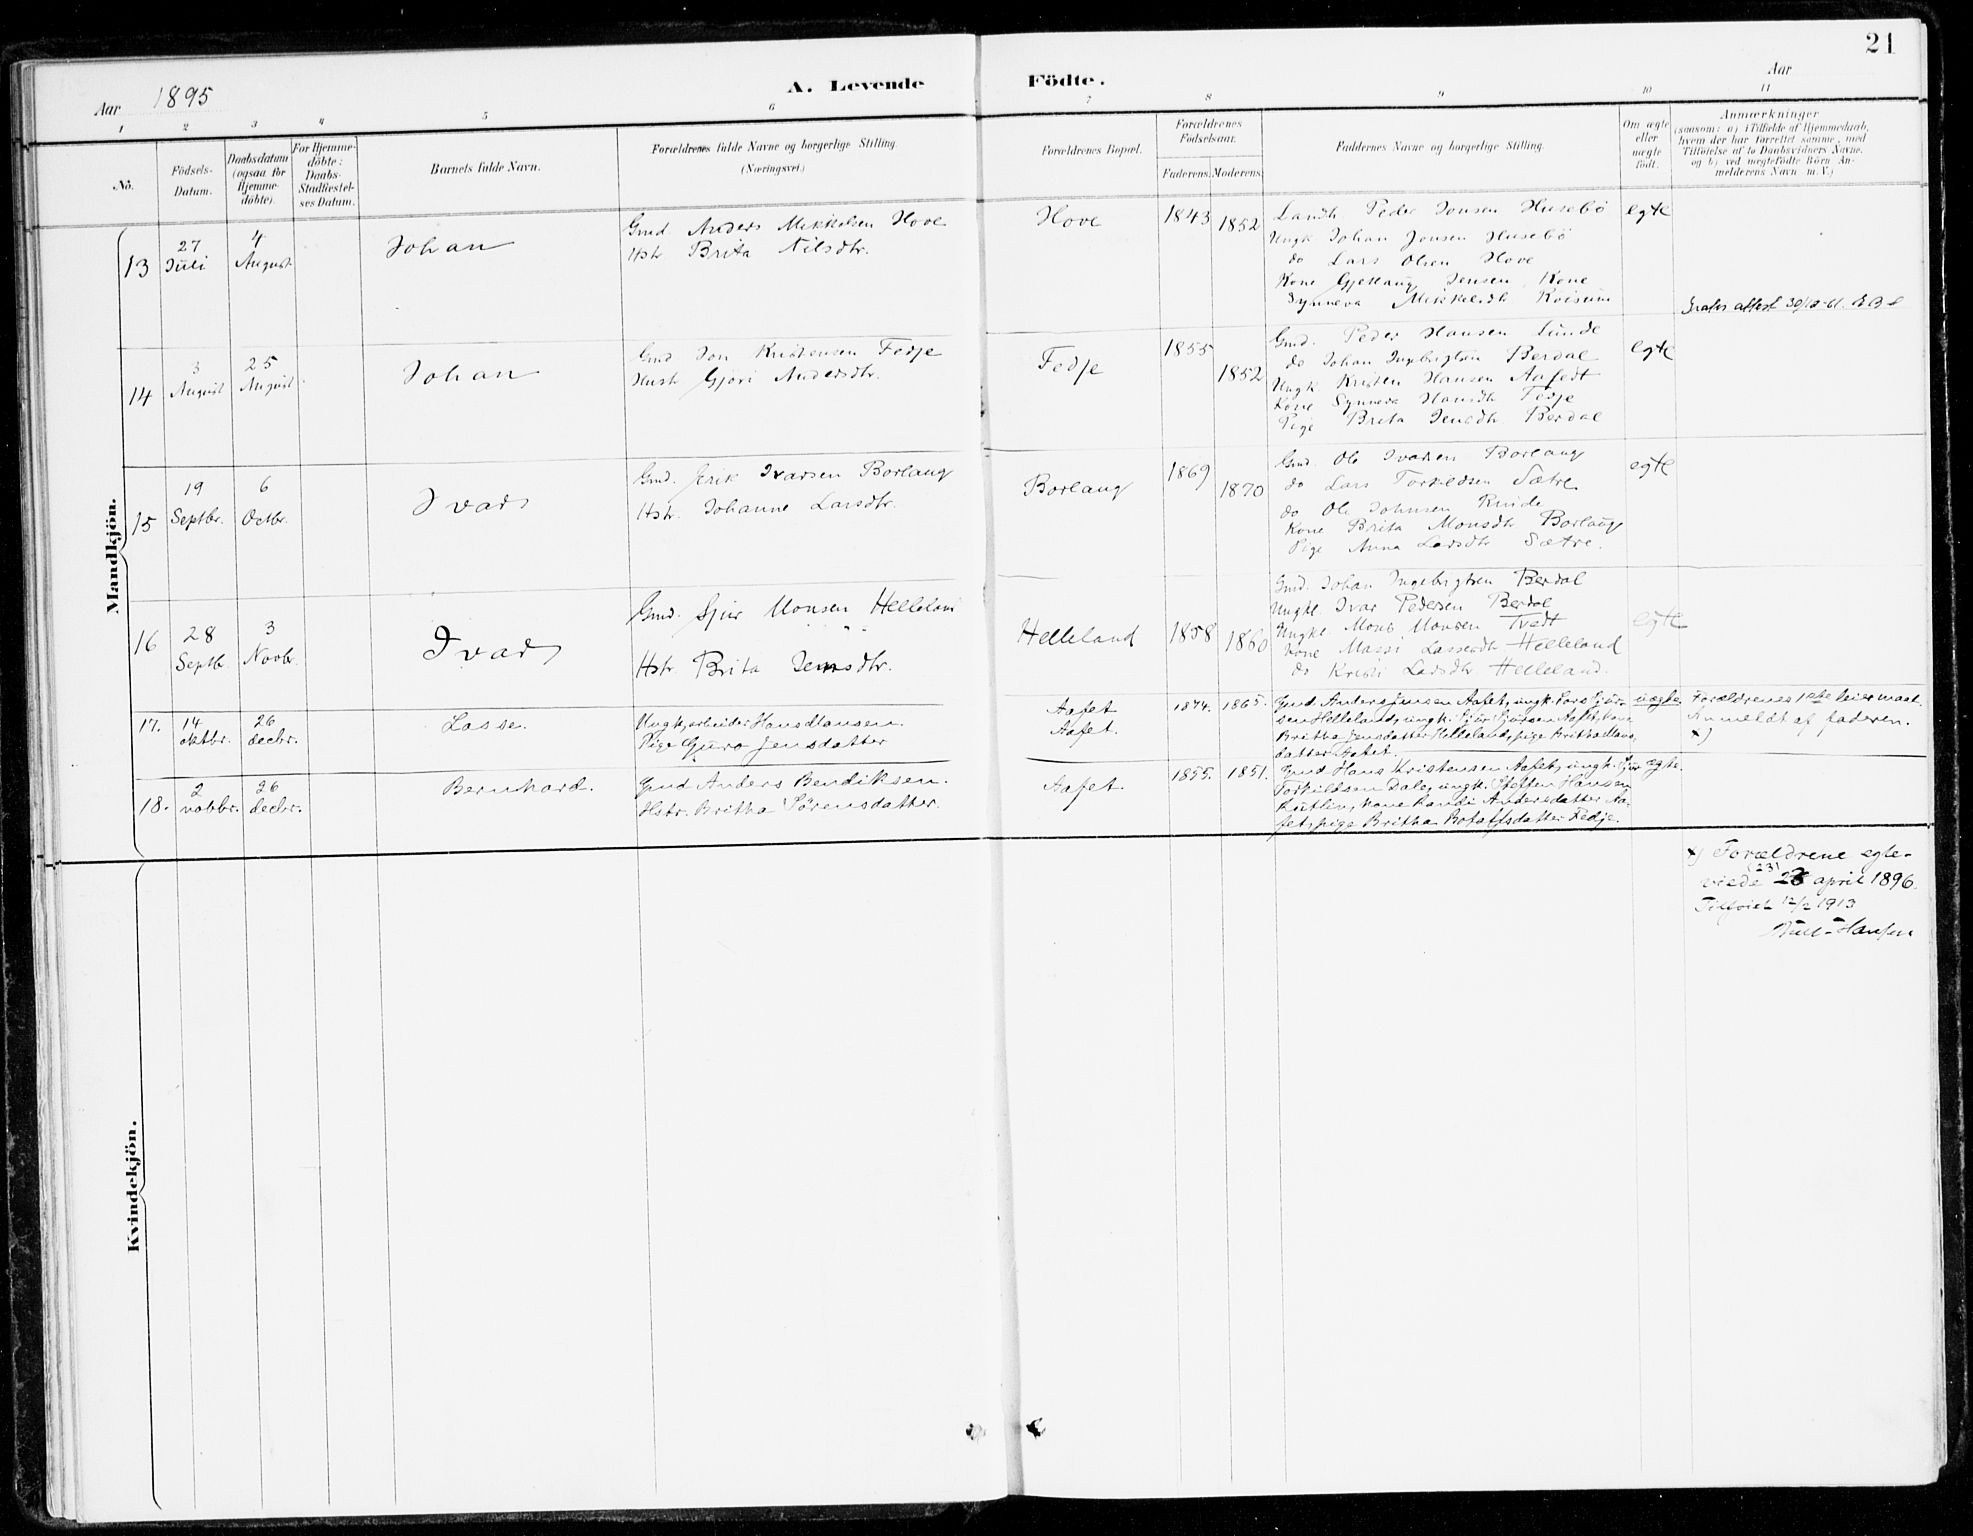 21
Aar 1895
A. Levende Födte.
Aar
1 2 3 4 5 6 7 8 9 10 11
No.
Födsels-Datum.
Daabsdatum (ogsaa for Hjemme-döbte).
For Hjemme-döbte: Daabs-Stadfæstel-ses Datum.
Barnets fulde Navn.
Forældrenes fulde Navne og borgerlige Stilling. (Næringsvei.)
Forældrenes Bopæl.
Forældrenes Födselsaar.
Faderens. Moderens.
Faddernes Navne og borgerlige Stilling.
Om ægte eller uægte födt.
Anmærkninger
(saasom: a) i Tilfælde af Hjemmedaab,
hvem der har forrettet samme, med
Tilföielse af to Daabsvidners Navne,
og b) ved uægtefödte Börn An-
melderens Navn m. V.)
Mandkjön.
13
27 Juli
4 August
Johan
Gmd Anders Mikkelsen Hove
Hstr Brita Nilsdtr.
Hove
1843
1852
Landh Peder Jonsen Husebö
Ungk Johan Jonsen Husebö
do Lars Olsen Hove
Kone Gjertaug Jensen Hove
Synneva Mikkelsdtr
egte
attest 30/12-61.
14
3 August
25 August
Johan
Gmd Jon Kristensen Fedje
Hustr Gjöri Andersdtr.
Fedje
1855
1852
Gmd. Peder Hansen Lunde
do Johan Ingebrigtsen Berdal
Ungk Kristen Hansen Aafedt
Kone Synneva Hansdtr Fedje
Pige Brita Jensdtr Berdal
egte
15
19 Septbr.
6 Octbr.
Ivar
Gmd. Erik Ivarsen Borlaug
Hstr. Johanne Larsdtr.
Borlaug
1869
1870
Gmd. Ole Ivarsen Borlaug
do Lars Torkelsen Sætre
do Ole Johnsen Rinde
Kone Brita Monsdtr Borlaug
Pige Anna Larsdtr Sætre.
egte
16
28 Septb.
3 Novbr.
Ivar
Gmd. Sjur Monsen Helleland
Hstr. Brita Jensdtr.
Helleland
1858
1860
Gmd. Johan Ingebrigtsen Berdal
Ungkl. Ivar Pedersen Berdal
Ungkl. Mons Monsen Tvedt
Kone Massi Lassesdtr Helleland
do Kristi Larsdtr Helleland.
egte
17.
14 oktbr.
26 decbr.
Lasse.
Ungk, arbeider Hans Hansen.
Pige Guro Jensdatter
Aafet
Aafet.
1874.
1865.
Gmd Anders Jensen Aafet, ungk. Lars Sjur-
sen Helleland, ungk. Sjur Sjursen Aafet, kone
Britha Jensdatter Helleland, pige Britha Hans-
datter Aafet.
uægte
Forældrenes 1ste leiermaal.
Anmeldt af faderen.
x)
18.
2 novbr.
26 decbr.
Bernhard.
Gmd Anders Bendiksen.
Hstr. Britha Sörensdatter.
Aafet.
1855.
1851.
Gmd Hans Kristensen Aafet, ungk. Sjur
Torkildsen Dale, ungk. Steffen Hansen
Kutlin, kone Randi Andersdatter Aa-
fet, pige Britha Botolfsdatter Fedje.
egte.
Kvindekjön.
x) Forældrene egte-
(23)
viede 23 april 1896.
Tilföiet 12/2 1913
Bull-Hansen